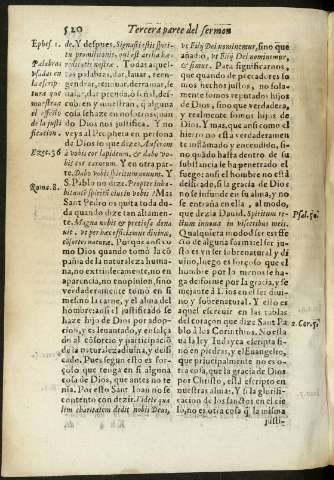 520
Tercera parte del sermon
Ephes. 1.
Palabras
vsadas en
la escrip
tura, que
muestran
el effecto
de la justi
ficacion.
Ezec. 36
Rom. 8.
de. Y despues. Signati estis spiri-
tu promissionis, qui est arrha hæ-
reditatis nostræ. Todas aques-
tas palabras, dar, lauar, reen-
gendrar, renouar, derramar, se
llar, dar prenda, o señal, prediscan y muestran, q̃ alguna
cosa se haze en nosotros, quan
do Dios nos justifica. Y no
veys al Propheta en persona
de Dios lo que dize. Auferam
à vobis cor lapideum, & dabo vo-
bis cor carneum. Y en otra par-
te. Dabo vobis spiritum nouum. Y
S. Pablo no dize. Propter inha-
bitantē spiritū eius in vobis. Mas
Sant Pedro es quita toda du-
da quando dize tan altamen-
te. Magna nobis & pretiosa dona
uit, vt per hæc efficiamur diuinæ,
cōsortes naturæ. Porque ansi co
mo Dios quando tomó la cō
pañia de la naturaleza huma
na, no extrinsecamente, no en
aparencia, no en opinion, sino
verdaderamente tomó en si
mesmo la carne, y el alma del
hombre: ansi el justificado se
haze hijo de Dios por adop-
cion, y es leuantado, y ensalça
do al cōsorcio y participació
de la naturaleza diuina, y deifi-
cado. Pues segun esto es for-
çoso que tenga en si alguna
cosa de Dios, que antes no te
nia. Por esto Sant Ioan no se
contentó con dezir. Videte qua
lem charitatem dedit nobis Deus,
vt Filij Dei nominemur, sino que
añadio, vt Filij Dei nominemur,
& simus. Para significarnos,
que quando de peccadores so
mos hechos justos, no sola-
mente somos reputados hijos
de Dios, sino que verdadera,
y realmente somos hijos de
Dios. Y mas, que ansi como el
hierro no está verdaderamen
te inflamado y encendido, si-
no quando hasta dentro de su
substancia ha penetrado el
fuego: ansi el hombre no está
deificado, si la gracia de Dios
no se entraña en el alma, y no
se entraña en ella, al modo,
que dezia Dauid. Spiritum re-
ctum innoua in visceribus meis.
Qualquiera modo de ser es effe
cto de alguna forma: el ser ju
sto es vn ser sobrenatural y di
uino, luego es forçoso que el
hombre por lo menos se ha-
ga deiforme por la gracia, y se
mejante à Dios en el ser diui-
no y sobrenatural. Y esto es
aquel escreuir en las tablas
del coraçon que dize Sant Pa
blo à los Corinthios. Nuestra
la ley Iudayca esta escripta si-
no en piedras, y el Euangelio,
que principalmente no es o-
tra cosa, que la gracia de Dios
por Christo, está escripto en
nuestras almas. Y si la glorifi-
cacion de los sanctos en el cie
lo, no es otra cosa q̃ la misma
justi-
Psal. 50.
2. Cor. 3.